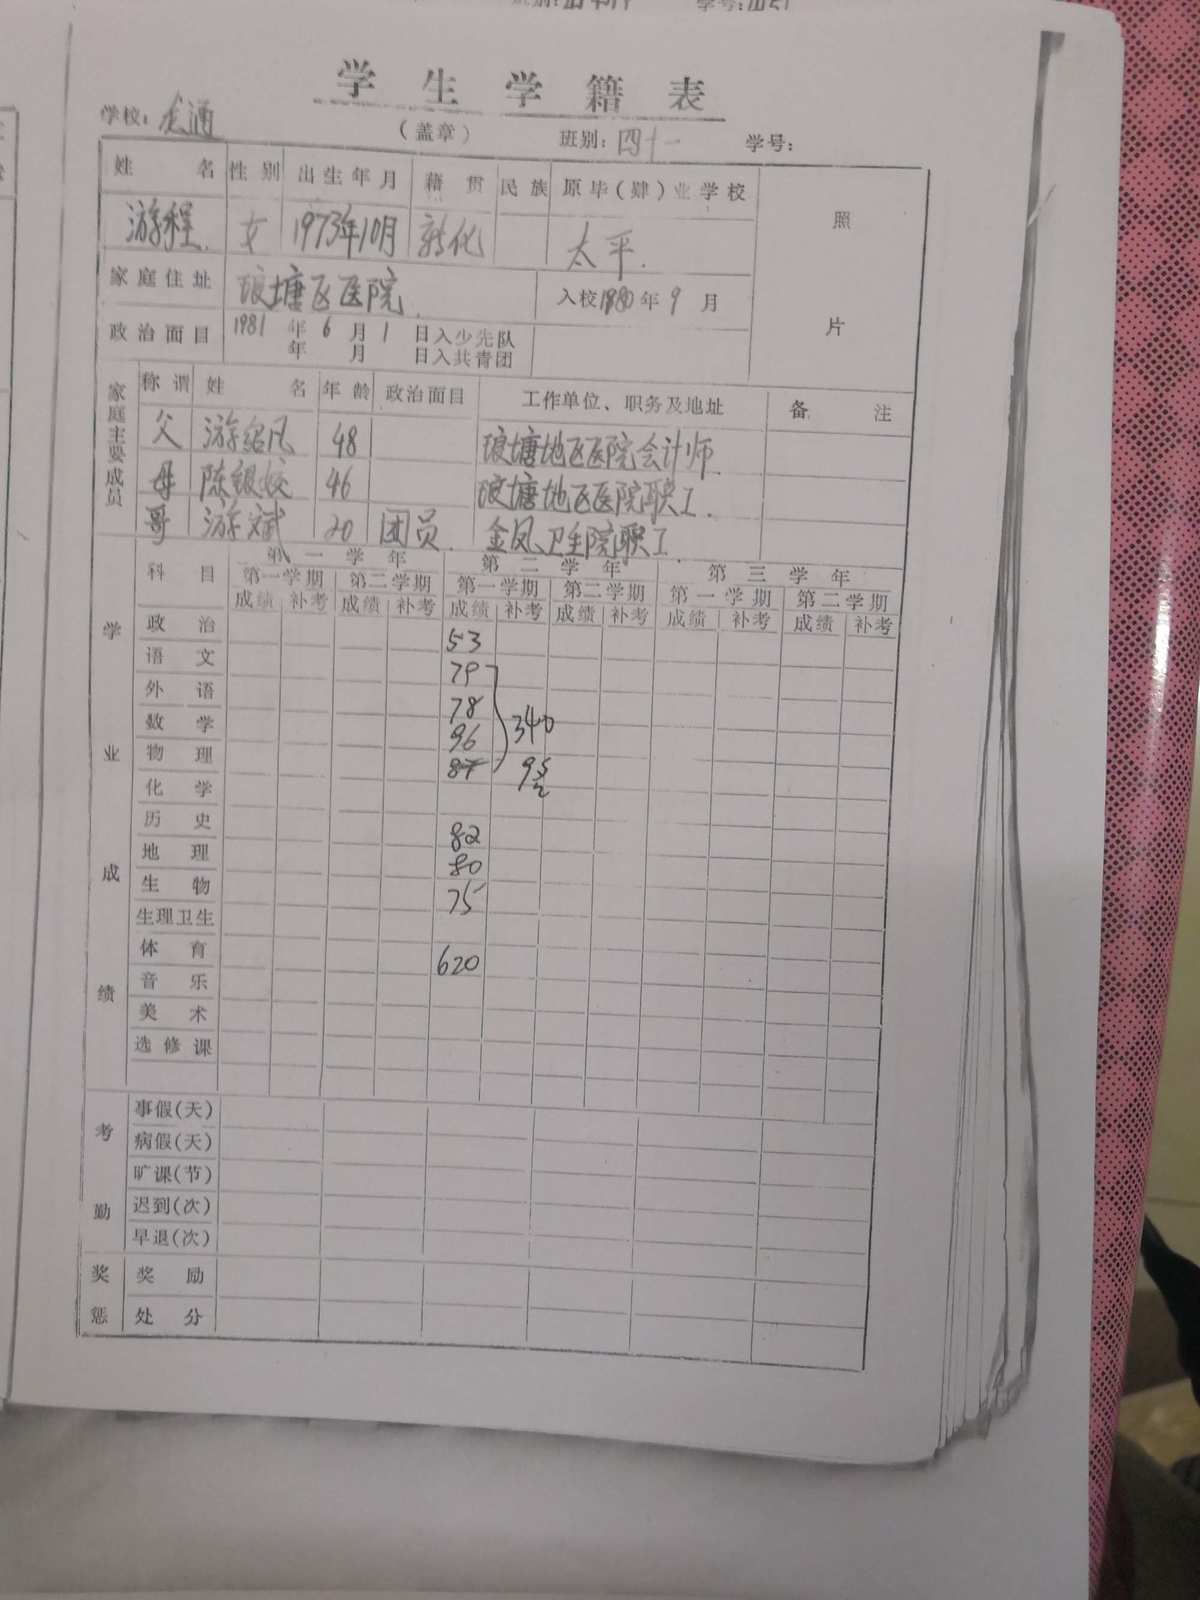 学生学籍表
学校: （盖章） 班别:四十一 学号:
姓名 性别 出生年月 藉贯 民族 原毕(肄)业学校 照片
游程 女 1973年10月 新化 太平.
家庭住址 琅塘区医院. 入校1980年9月
政治面目 1981年6月1日入少先队
年 月 日入共青团
家庭主要成员 称谓 姓名 年龄 政治面目 工作单位、职务及地址 备注
父 游绍凡 48 琅塘地区医院会计师.
母 陈银姣 46 琅塘地区医院职工.
哥 游斌 20 团员. 金凤卫生院职工.
学业成绩 科目 第一学年 第二学年 第三学年
第一学期 第二学期 第一学期 第二学期 第一学期 第二学期
成绩 补考 成绩 补考 成绩 补考 成绩 补考 成绩 补考 成绩 补考
政治 53
语文 79
外语 78
数学 96 340
物理 87 95
化学
历史 82
地理 80
生物 75
生理卫生
体育 620
音乐
美术
选修课
考勤 事假(天)
病假(天)
旷课(节)
迟到(次)
早退(次)
奖惩 奖励
处分